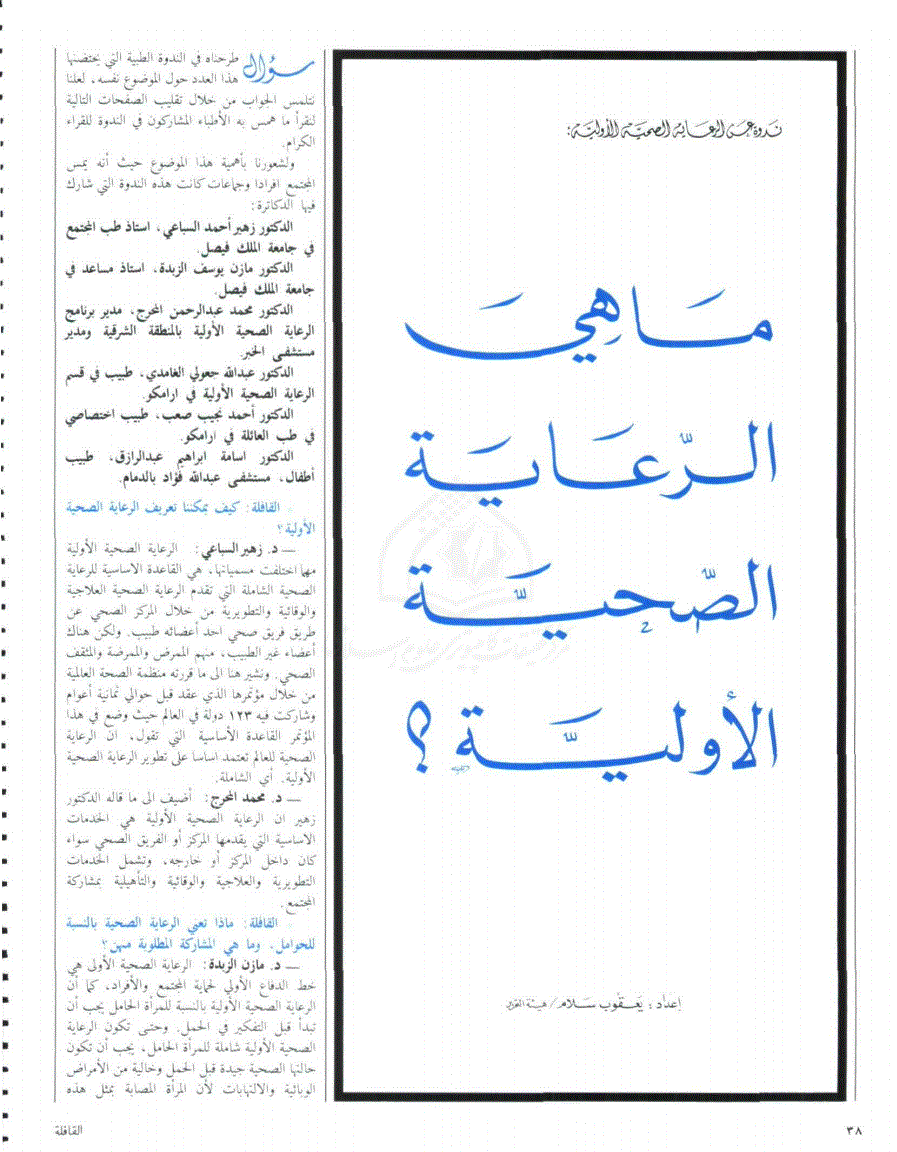 ندوة عن الرعاية الصحية الأولية:
ما هي
الرّعاية
الصّحيّة
الأوليّة ؟
إعداد: يعقوب سلام/هيئة التحرير
سؤال طرحناه في الندوة الطبية التي يحتضنها
هذا العدد حول الموضوع نفسه، لعلنا
نتلمس الجواب من خلال تقليب الصفحات التالية
لنقرأ ما همس به الأطباء المشاركون في الندوة للقراء
الكرام.
ولشعورنا بأهمية هذا الموضوع حيث أنه يمس
المجتمع افرادا وجماعات كانت هذه الندوة التي شارك
فيها الدكاترة:
الدكتور زهير أحمد السباعي، استاذ طب المجتمع
في جامعة الملك فيصل.
الدكتور مازن يوسف الزبدة، استاذ مساعد في
جامعة الملك فيصل.
الدكتور محمد عبدالرحمن المحرج، مدير برنامج
الرعاية الصحية الأولية بالمنطقة الشرقية ومدير
مستشفى الخبر.
الدكتور عبدالله جعولي الغامدي، طبيب في قسم
الرعاية الصحية الأولية في ارامكو.
الدكتور أحمد نجيب صعب، طبيب اختصاصي
في طب العائلة في ارامكو.
الدكتور اسامة ابراهيم عبدالرازق، طبيب
أطفال، مستشفى عبدالله فؤاد بالدمام.
القافلة: كيف يمكننا تعريف الرعاية الصحية
الأولية؟
— د. زهير السباعي: الرعاية الصحية الأولية
مهما اختلفت مسمياتها، هي القاعدة الاساسية للرعاية
الصحية الشاملة التي تقدم الرعاية الصحية العلاجية
والوقائية والتطويرية من خلال المركز الصحي عن
طريق فريق صحي احد أعضائه طبيب. ولكن هناك
أعضاء غير الطبيب، منهم الممرض والممرضة والمثقف
الصحي. ونشير هنا الى ما قررته منظمة الصحة العالمية
من خلال مؤتمرها الذي عقد قبل حوالي ثمانية أعوام
وشاركت فيه ١٢٣ دولة في العالم حيث وضع في هذا
المؤتمر القاعدة الأساسية التي تقول، ان الرعاية
الصحية للعالم تعتمد اساسا على تطوير الرعاية الصحية
الأولية. أي الشاملة.
— د. محمد المحرج: أضيف الى ما قاله الدكتور
زهير ان الرعاية الصحية الأولية هي الخدمات
الاساسية التي يقدمها المركز أو الفريق الصحي سواء
كان داخل المركز أو خارجه، وتشمل الخدمات
التطويرية والعلاجية والوقائية والتأهيلية بمشاركة
المجتمع.
القافلة: ماذا تعني الرعاية الصحية بالنسبة
للحوامل، وما هي المشاركة المطلوبة منهن؟
— د. مازن الزبدة: الرعاية الصحية الأولى هي
خط الدفاع الأولي لحماية المجتمع والأفراد، كما أن
الرعاية الصحية الأولية بالنسبة للمرأة الحامل يجب أن
تبدأ قبل التفكير في الحمل. وحتى تكون الرعاية
الصحية الأولية شاملة للمرأة الحامل، يجب أن تكون
حالتها الصحية جيدة قبل الحمل وخالية من الأمراض
الوبائية والالتهابات لأن المرأة المصابة بمثل هذه
٣٨
القافلة